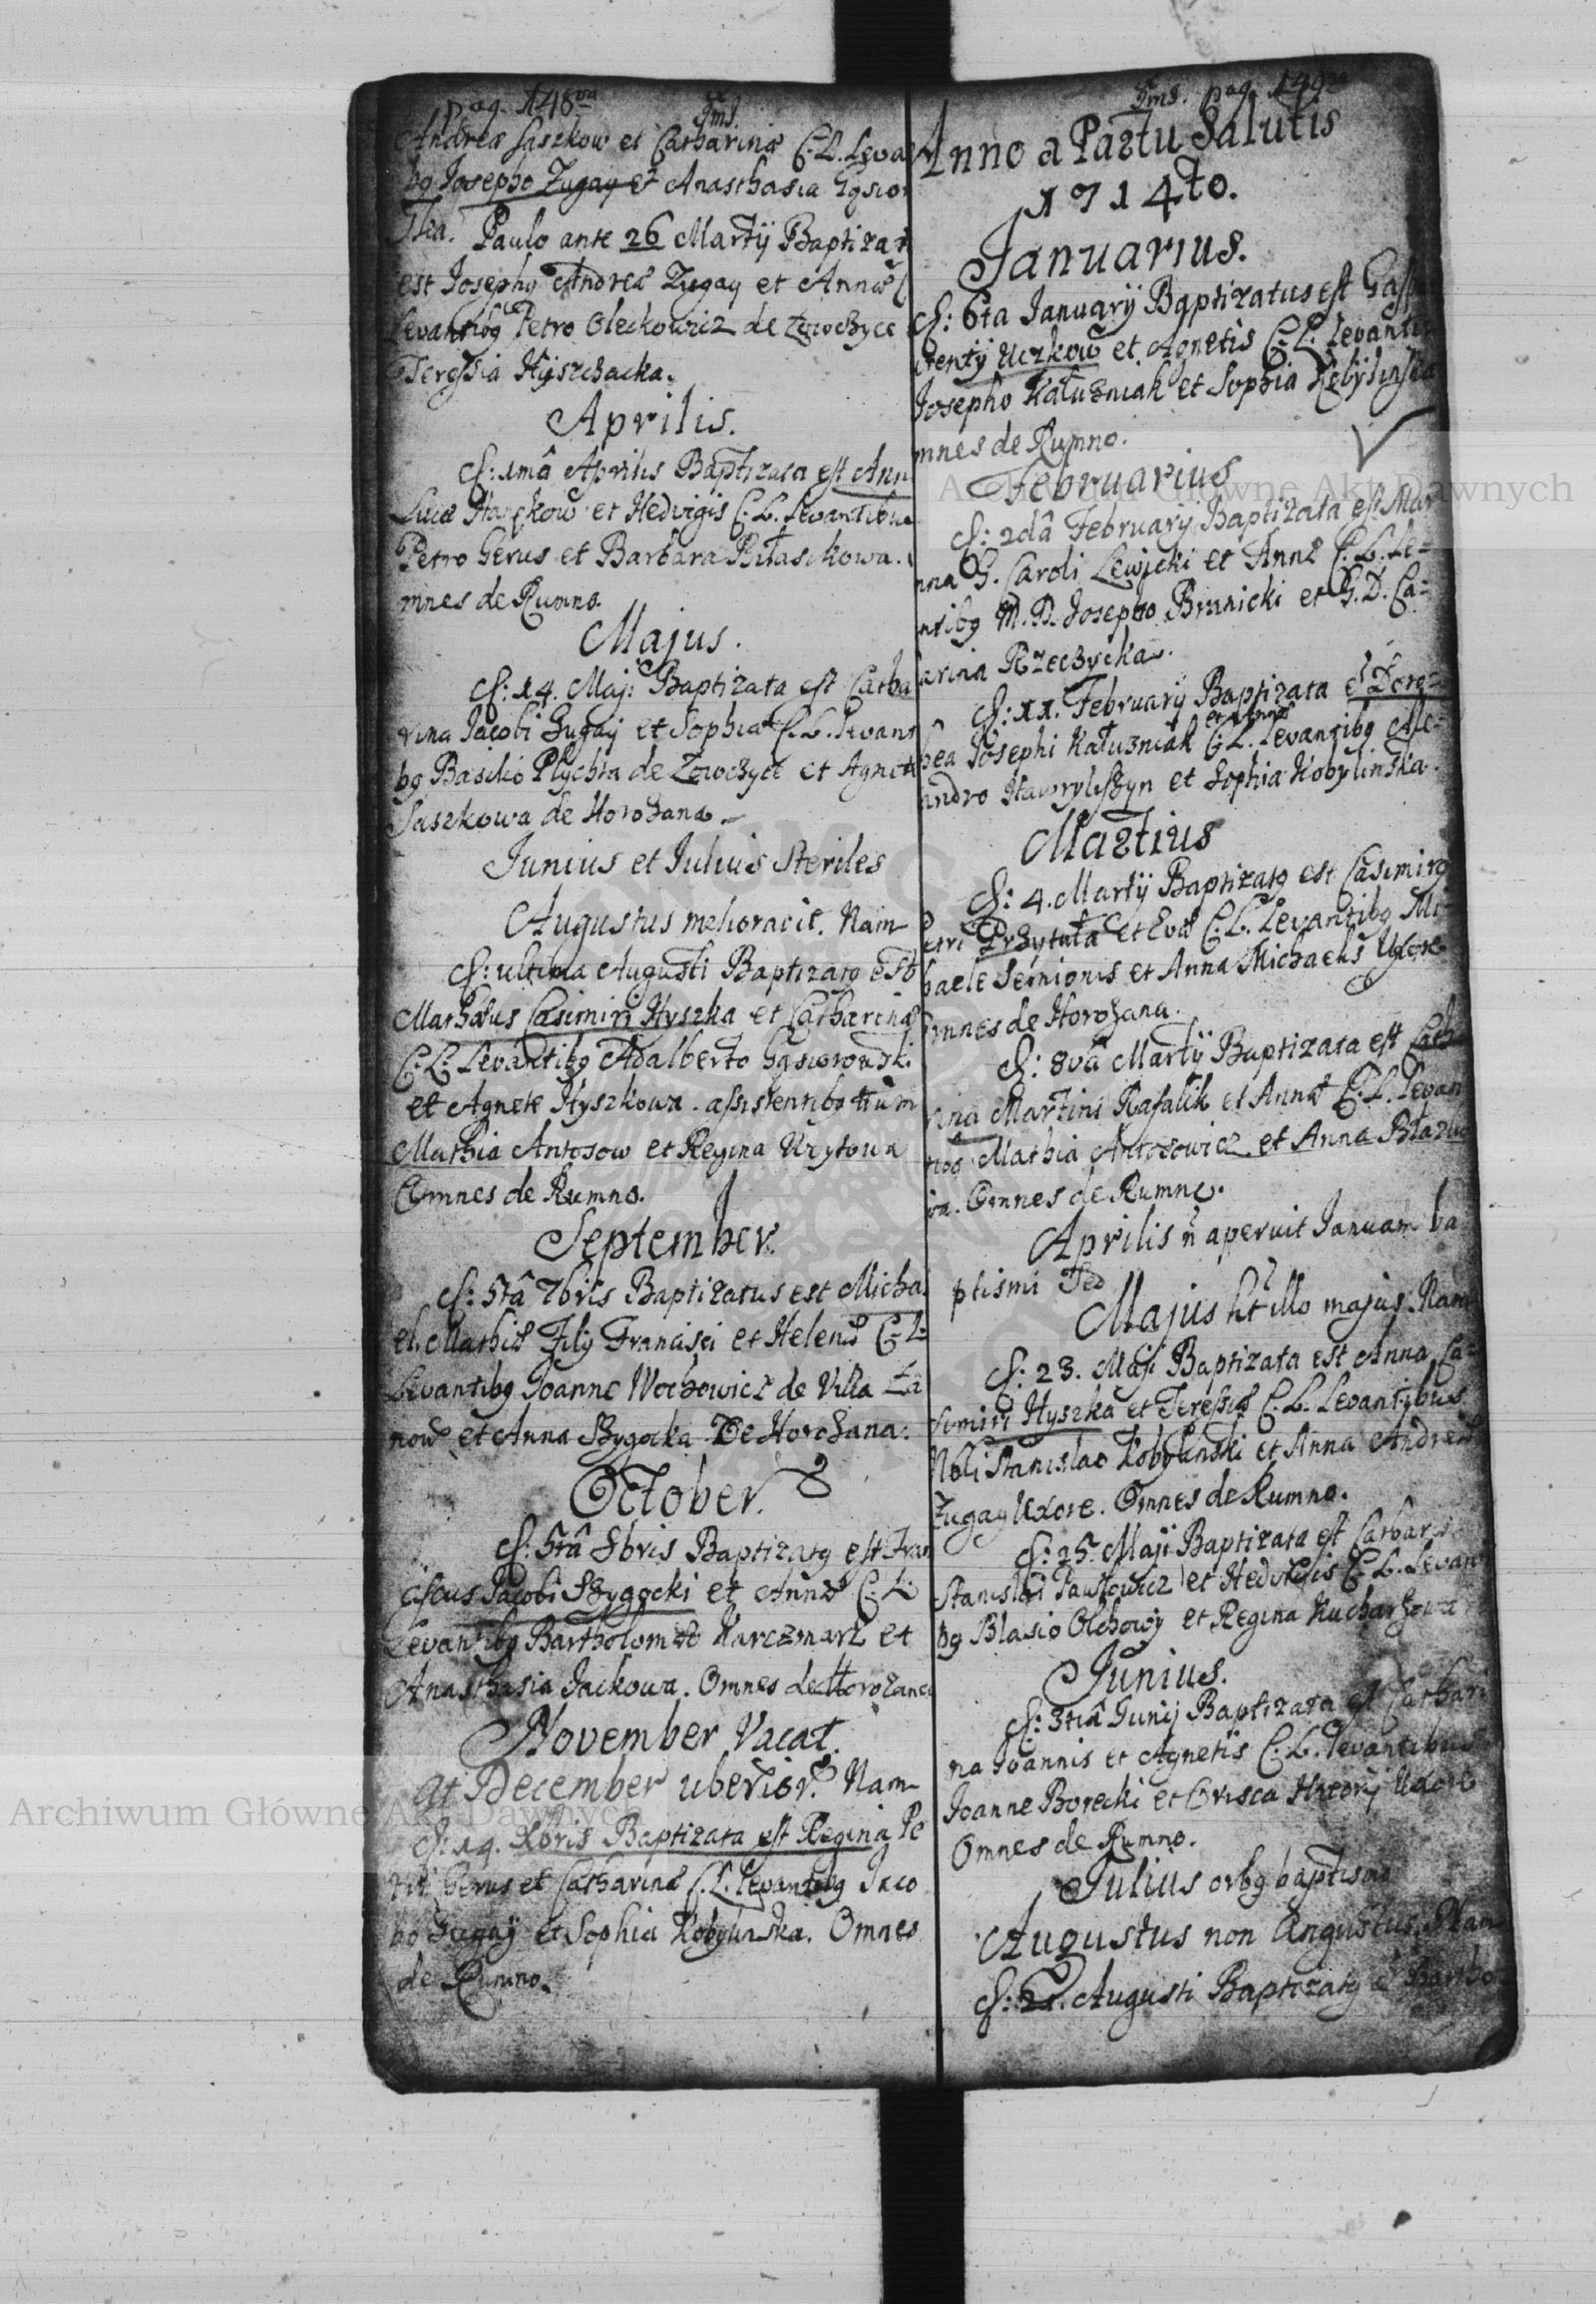 pag. 148va
Andreæ Saszkow et Catharinæ C: L. Leva
bg Josepho Zugay et Anasthasia Gąsior
ska. Paulo ante 26 Martij Baptizat
est Josephg Andreæ Zugay et Annæ C
Levantibg Petro Oleckowicz de
Teressia Hyszczacka.
Aprilis.
d: 1mâ Aprilis Baptizata est Ann
Lucæ et Hedvigis C: L. Levantibus
Petro Gerus et Barbara
mnes de Rumno.
Majus.
d: 14. Maj: Baptizata est Catha
rina Jacobi Zugaj et Sophiæ C: L. Levant
bg Basilio Plychta de et Agnet
Saszkowa de Horozana.
Junius et Julius Steriles
Augustus melioravit. Nam
d: ultima Augusti Baptizatg est
Mathæus Casimiri Hyszka et Catharinæ
C: L: Levantibg Adalberto Gąsiorowski
et Agnete Hyszkowa. assistentibg tum
Mathia Antosow et Regina
Omnes de Rumno.
September.
d: 5tâ 7bris Baptizatus est Micha
el. Mathiæ Filij Francisci et Helenæ C: L:
Levantibg Joanne Wochowicz de Villa La
now et Anna Szygocka De Horozana.
October.
d: 5tâ 8bris Baptizatg est Fran
ciscus Jacobi Szygocki et Annæ C: L:
Levantibg Bartholomæo Karczmarz et
Anasthasia Jackowa. Omnes de Horozana
November Vacat.
At December uberior. Nam
d: 14. Xbris Baptizata est Regina Pe
tri Gerus et Catharinæ C: L. Levantibg Jaco
bo Zugaj et Sophia Kobylinska. Omnes
de Rumno.
pag. 149na
Anno a Partu Salutis
1714to.
Januarius.
d: 6ta Januarij Baptizatus est Gasp
et Agnetis C: L: Levantib
Josepho Kałuzniak et Sophia Kobylinska
mnes de Rumno.
Februarius
d: 2dâ Februarij Baptizata est Mar
nna G. Caroli Lewicki et Annæ C: L. Le=
ntibg M. D. Josepho Brunicki et G. D. Ca=
arina Rzeczycka.
d: 11. Februarij Baptizata e Doro
hea Josephi Kałuzniak et Annæ C: L. Levantibg Ale=
andro Hawryliszyn et Sophia Kobylinska.
Martius
d: 4. Martij Baptizatg est Casimirg
etri Przytuła et Evæ C: L. Levantibg Mi=
haele Semionis et Anna Michaelis Uxore
mnes de Horozana.
d: 8va Martij Baptizata est Catha
rina Martini Rafalik et Annæ C: L. Levan
tibg Mathia Antosowicz et Anna
wa. Omnes de Rumno.
Aprilis n aperuit Januam ba
ptismi Sed
Majus fit illo majus. Nam
d: 23. Maji Baptizata est Anna Ca=
simiri Hyszka et Teressiæ C: L. Levantibus
Nobi Stanislao Kobylinski et Anna Andreæ
Zugay Uxore. Omnes de Rumno.
d: 25. Maji Baptizata est Catharina
Stanislai Pawłowicz et Hedvigis C: L. Levan
bg Blasio Olchowy et Regina Kucharzowa
Junius.
d: 3tiâ Junij Baptizata est Cathari
na Joannis et Agnetis C: L. Levantibus
Joanne Borecki et Orisca Uxore
Omnes de Rumno.
Julius orbg baptismo
Augustus non Angustus. Nam
d: 21. Augusti Baptizatg e Bartho
Archiwum Główne Akt Dawnych
Archiwum Główne Akt Dawnych